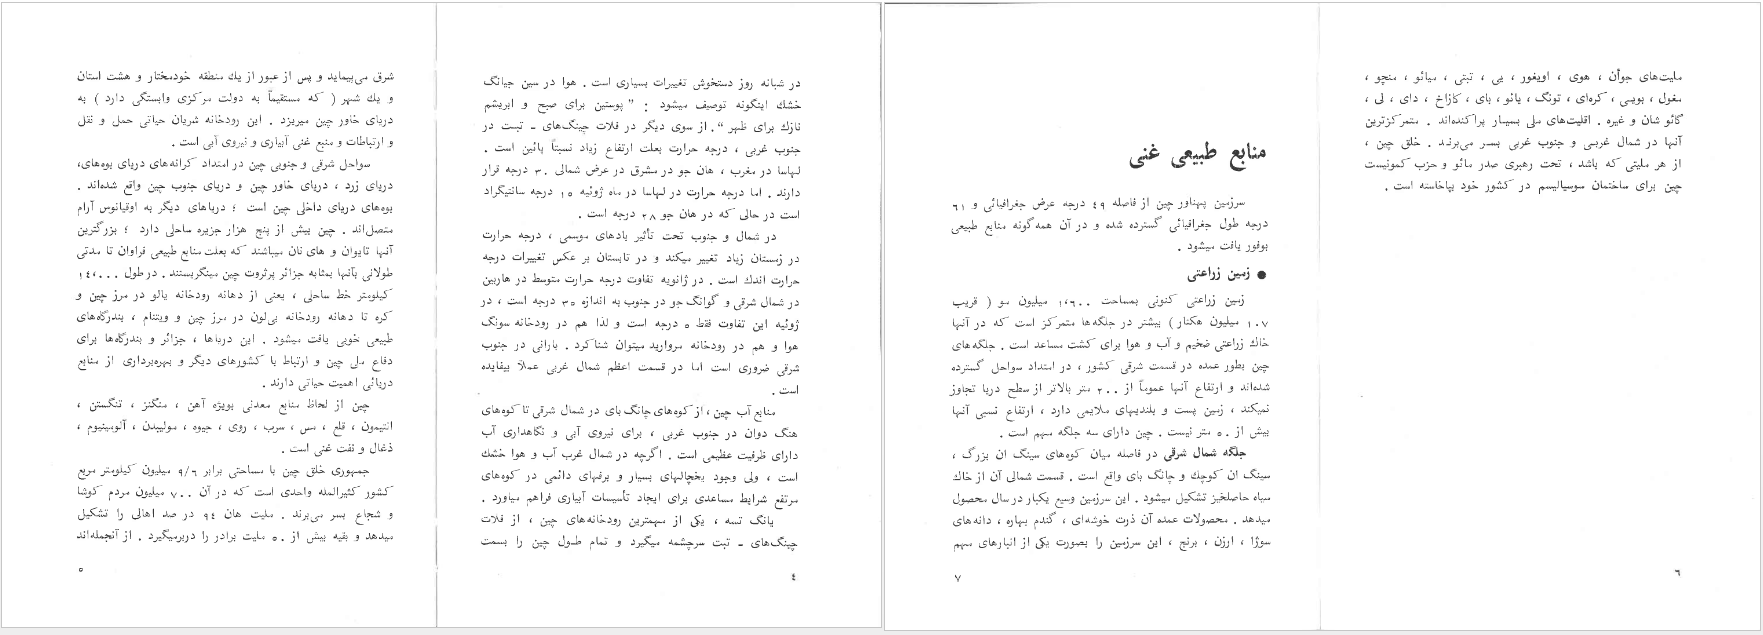 در شبانه روز دستخوش تغییرات بسیاری است . هوا در سین جیانگ
خشك اینگونه توصیف میشود : " پوستین برای صبح و ابریشم
نازك برای ظهر ". از سوی دیگر در فلات چینگ‌های ـ تبت در
جنوب غربی ، درجه حرارت بعلت ارتفاع زیاد نسبتاً پائین است .
لهاسا در مغرب ، هان جو در مشرق در عرض شمالی ۳۰ درجه قرار
دارند . اما درجه حرارت در لهاسا در ماه ژوئیه ۱۵ درجه سانتیگراد
است در حالی که در هان جو ۲۸ درجه است .
در شمال و جنوب تحت تأثیر بادهای موسمی ، درجه حرارت
در زمستان زیاد تغییر میکند و در تابستان بر عکس تغییرات درجه
حرارت اندك است . در ژانویه تفاوت درجه حرارت متوسط در هاربین
در شمال شرقی و گوانگ جو در جنوب به اندازه ۳۵ درجه است ، در
ژوئیه این تفاوت فقط ۵ درجه است و لذا هم در رودخانه سونگ
هوا و هم در رودخانه مروارید میتوان شنا کرد . بارانی در جنوب
شرقی ضروری است اما در قسمت اعظم شمال غربی عملاً بیفایده
است .
منابع آب چین ، از کوه‌های چانگ بای در شمال شرقی تا کوه‌های
هنگ دوان در جنوب غربی ، برای نیروی آبی و نگاهداری آب
دارای ظرفیت عظیمی است . اگرچه در شمال غرب آب و هوا خشك
است ، ولی وجود یخچالهای بسیار و برفهای دائمی در کوه‌های
مرتفع شرایط مساعدی برای ایجاد تأسیسات آبیاری فراهم میاورد .
یانگ تسه ، یکی از مهمترین رودخانه‌های چین ، از فلات
چینگ‌های ـ تبت سرچشمه میگیرد و تمام طول چین را بسمت
٤
شرق می‌پیماید و پس از عبور از یك منطقه خودمختار و هشت استان
و یك شهر ( که مستقیماً به دولت مرکزی وابستگی دارد ) به
دریای خاور چین میریزد . این رودخانه شریان حیاتی حمل و نقل
و ارتباطات و منبع غنی آبیاری و نیروی آبی است .
سواحل شرقی و جنوبی چین در امتداد کرانه‌های دریای بوه‌های،
دریای زرد ، دریای خاور چین و دریای جنوب چین واقع شده‌اند .
بوه‌های دریای داخلی چین است ؛ دریاهای دیگر به اوقیانوس آرام
متصل‌اند . چین بیش از پنج هزار جزیره ساحلی دارد ؛ بزرگترین
آنها تایوان و های نان میباشند که بعلت منابع طبیعی فراوان تا مدتی
طولانی بآنها بمثابه جزائر پرثروت چین مینگریستند . در طول ۱٤،۰۰۰
کیلومتر خط ساحلی ، یعنی از دهانه رودخانه یالو در مرز چین و
کره تا دهانه رودخانه بی‌لون در مرز چین و ویتنام ، بندرگاه‌های
طبیعی خوبی یافت میشود . این دریاها ، جزائر و بندرگاه‌ها برای
دفاع ملی چین و ارتباط با کشورهای دیگر و بهره‌برداری از منابع
دریائی اهمیت حیاتی دارند .
چین از لحاظ منابع معدنی بویژه آهن ، منگنز ، تنگستن ،
انتیمون ، قلع ، مس ، سرب ، روی ، جیوه ، مولیبدن ، آلومینیوم ،
ذغال و نفت غنی است .
جمهوری خلق چین با مساحتی برابر ۹/٦ میلیون کیلومتر مربع
کشور کثیرالمله واحدی است که در آن ۷۰۰ میلیون مردم کوشا
و شجاع بسر می‌برند . ملیت هان ۹٤ در صد اهالی را تشکیل
میدهد و بقیه بیش از ۵۰ ملیت برادر را دربرمیگیرد . از آنجمله‌اند
۵
ملیت‌های جوآن ، هوی ، اویغور ، یی ، تبتی ، میائو ، منچو ،
مغول ، بویی ، کره‌ای ، تونگ ، یائو ، بای ، کازاخ ، دای ، لی ،
گائو شان و غیره . اقلیت‌های ملی بسیار پراکنده‌اند . متمرکزترین
آنها در شمال غربی و جنوب غربی بسر می‌برند . خلق چین ،
از هر ملیتی که باشد ، تحت رهبری صدر مائو و حزب کمونیست
چین برای ساختمان سوسیالیسم در کشور خود بپاخاسته است .
٦
منابع طبیعی غنی
سرزمین پهناور چین از فاصله ٤۹ درجه عرض جغرافیائی و ٦۱
درجه طول جغرافیائی گسترده شده و در آن همه‌گونه منابع طبیعی
بوفور یافت میشود .
● زمین زراعتی
زمین زراعتی کنونی بمساحت ۱،٦۰۰ میلیون مو ( قریب
۱۰۷ میلیون هکتار ) بیشتر در جلگه‌ها متمرکز است که در آنها
خاك زراعتی ضخیم و آب و هوا برای کشت مساعد است . جلگه‌های
چین بطور عمده در قسمت شرقی کشور ، در امتداد سواحل گسترده
شده‌اند و ارتفاع آنها عموماً از ۲۰۰ متر بالاتر از سطح دریا تجاوز
نمیکند ، زمین پست و بلندیهای ملایمی دارد ، ارتفاع نسبی آنها
بیش از ۵۰ متر نیست . چین دارای سه جلگه مهم است .
جلگه شمال شرقی در فاصله میان کوه‌های سینگ ان بزرگ ،
سینگ ان کوچك و چانگ بای واقع است . قسمت شمالی آن از خاك
سیاه حاصلخیز تشکیل میشود . این سرزمین وسیع یکبار در سال محصول
میدهد . محصولات عمده آن ذرت خوشه‌ای ، گندم بهاره ، دانه‌های
سوژا ، ارزن ، برنج ، این سرزمین را بصورت یکی از انبارهای مهم
۷